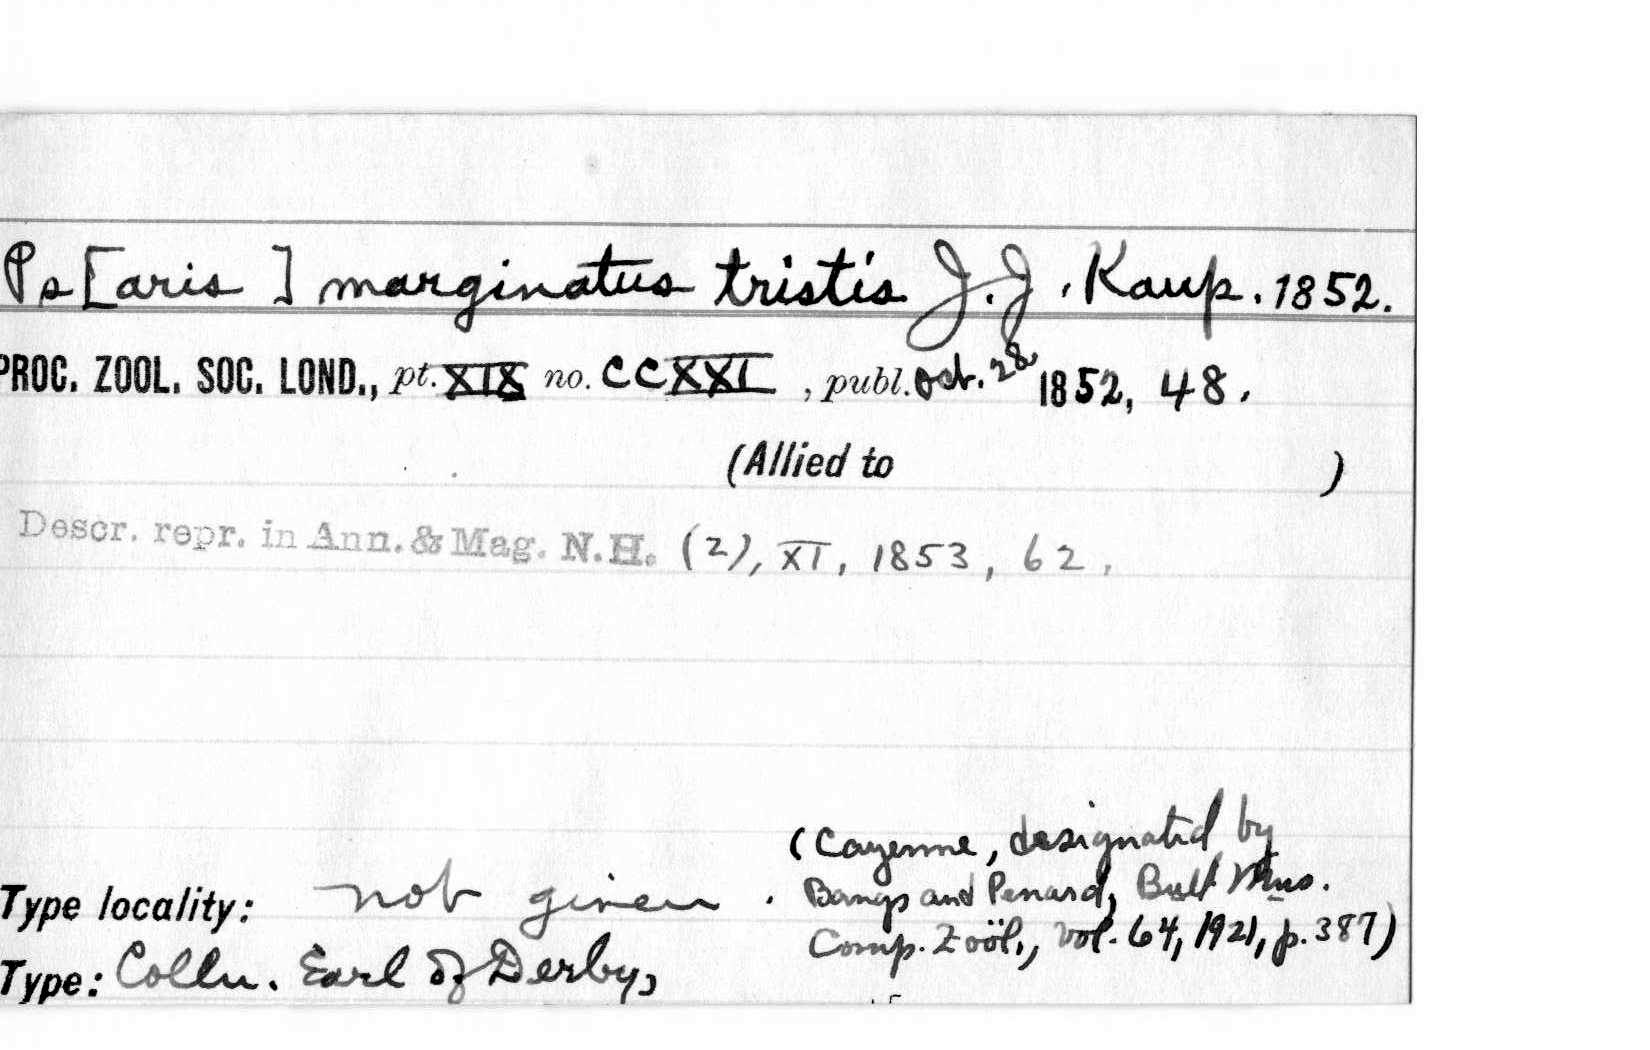 Ps[aris ] marginatus tristis J.J. Kaup. 1852.
PROC. ZOOL. SOC. LOND., pt. XIX no. CCXXI , publ. Oct. 28, 1852, 48.
(Allied to )
Descr. repr. in Ann. & Mag. N.H. (2), XI, 1853, 62.
(Cayenne, designated by
Bangs and Penard, Bull Mus.
Comp. Zoöl., vol. 64, 1921, p. 387)
Type locality: not given .
Type: Colln. Earl of Derby,